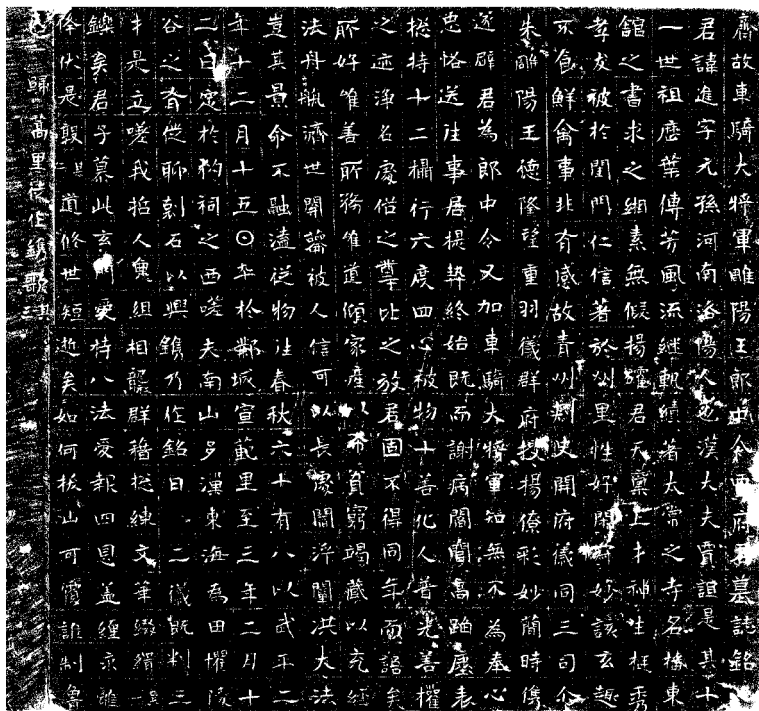 齊故車騎大將軍雎陽王郎中令賈府君墓誌銘
君諱進字元孫河南洛陽人也漢大夫賈誼是其十
一世祖歷葉傳芳風流繼軌績著太常之寺名標東
舘之書求之緗素無假揚確君天稟上才神生挺秀
孝友被於閨門仁信著於州里性好閑妙該玄趣
不食鮮禽事非有感故青州刾史開府儀同三司介
朱雎陽王德隆望重羽儀群府投揚僚彩妙蕳時儁
遂辟君為郎中令又加車騎大將軍知無不為奉心
忠恪送往事居提挈終始既而謝病閭閻高蹈塵表
揔持十二攝行六度四心被物十善化人普光善權
之迹淨名處俗之輩比之放君固不得同年而語矣
所好惟善所務惟道傾家產以布貧窮竭藏以充經
法丹航濟世開蕍被人信可以長處閻浮闡洪大法
豈其景命不融遠従物往春秋六十有八以武平二
年十二月十五日卒於鄴城宣範里至三年二月十
二日定於豹祠之西嗟夫南山夛漢東海為田懼陵
谷之有徙聊刻石以興鐫乃作銘曰 二儀既判三
才是立嗟我招人龜組相龔群籍揔練文華緻緝
鑠矣君子慕此玄門奕持八法爰報四恩盖纏永離
俻伏是敦道修世短逝矣如何拔山可賣誰制魯
一歸蒿里徒作